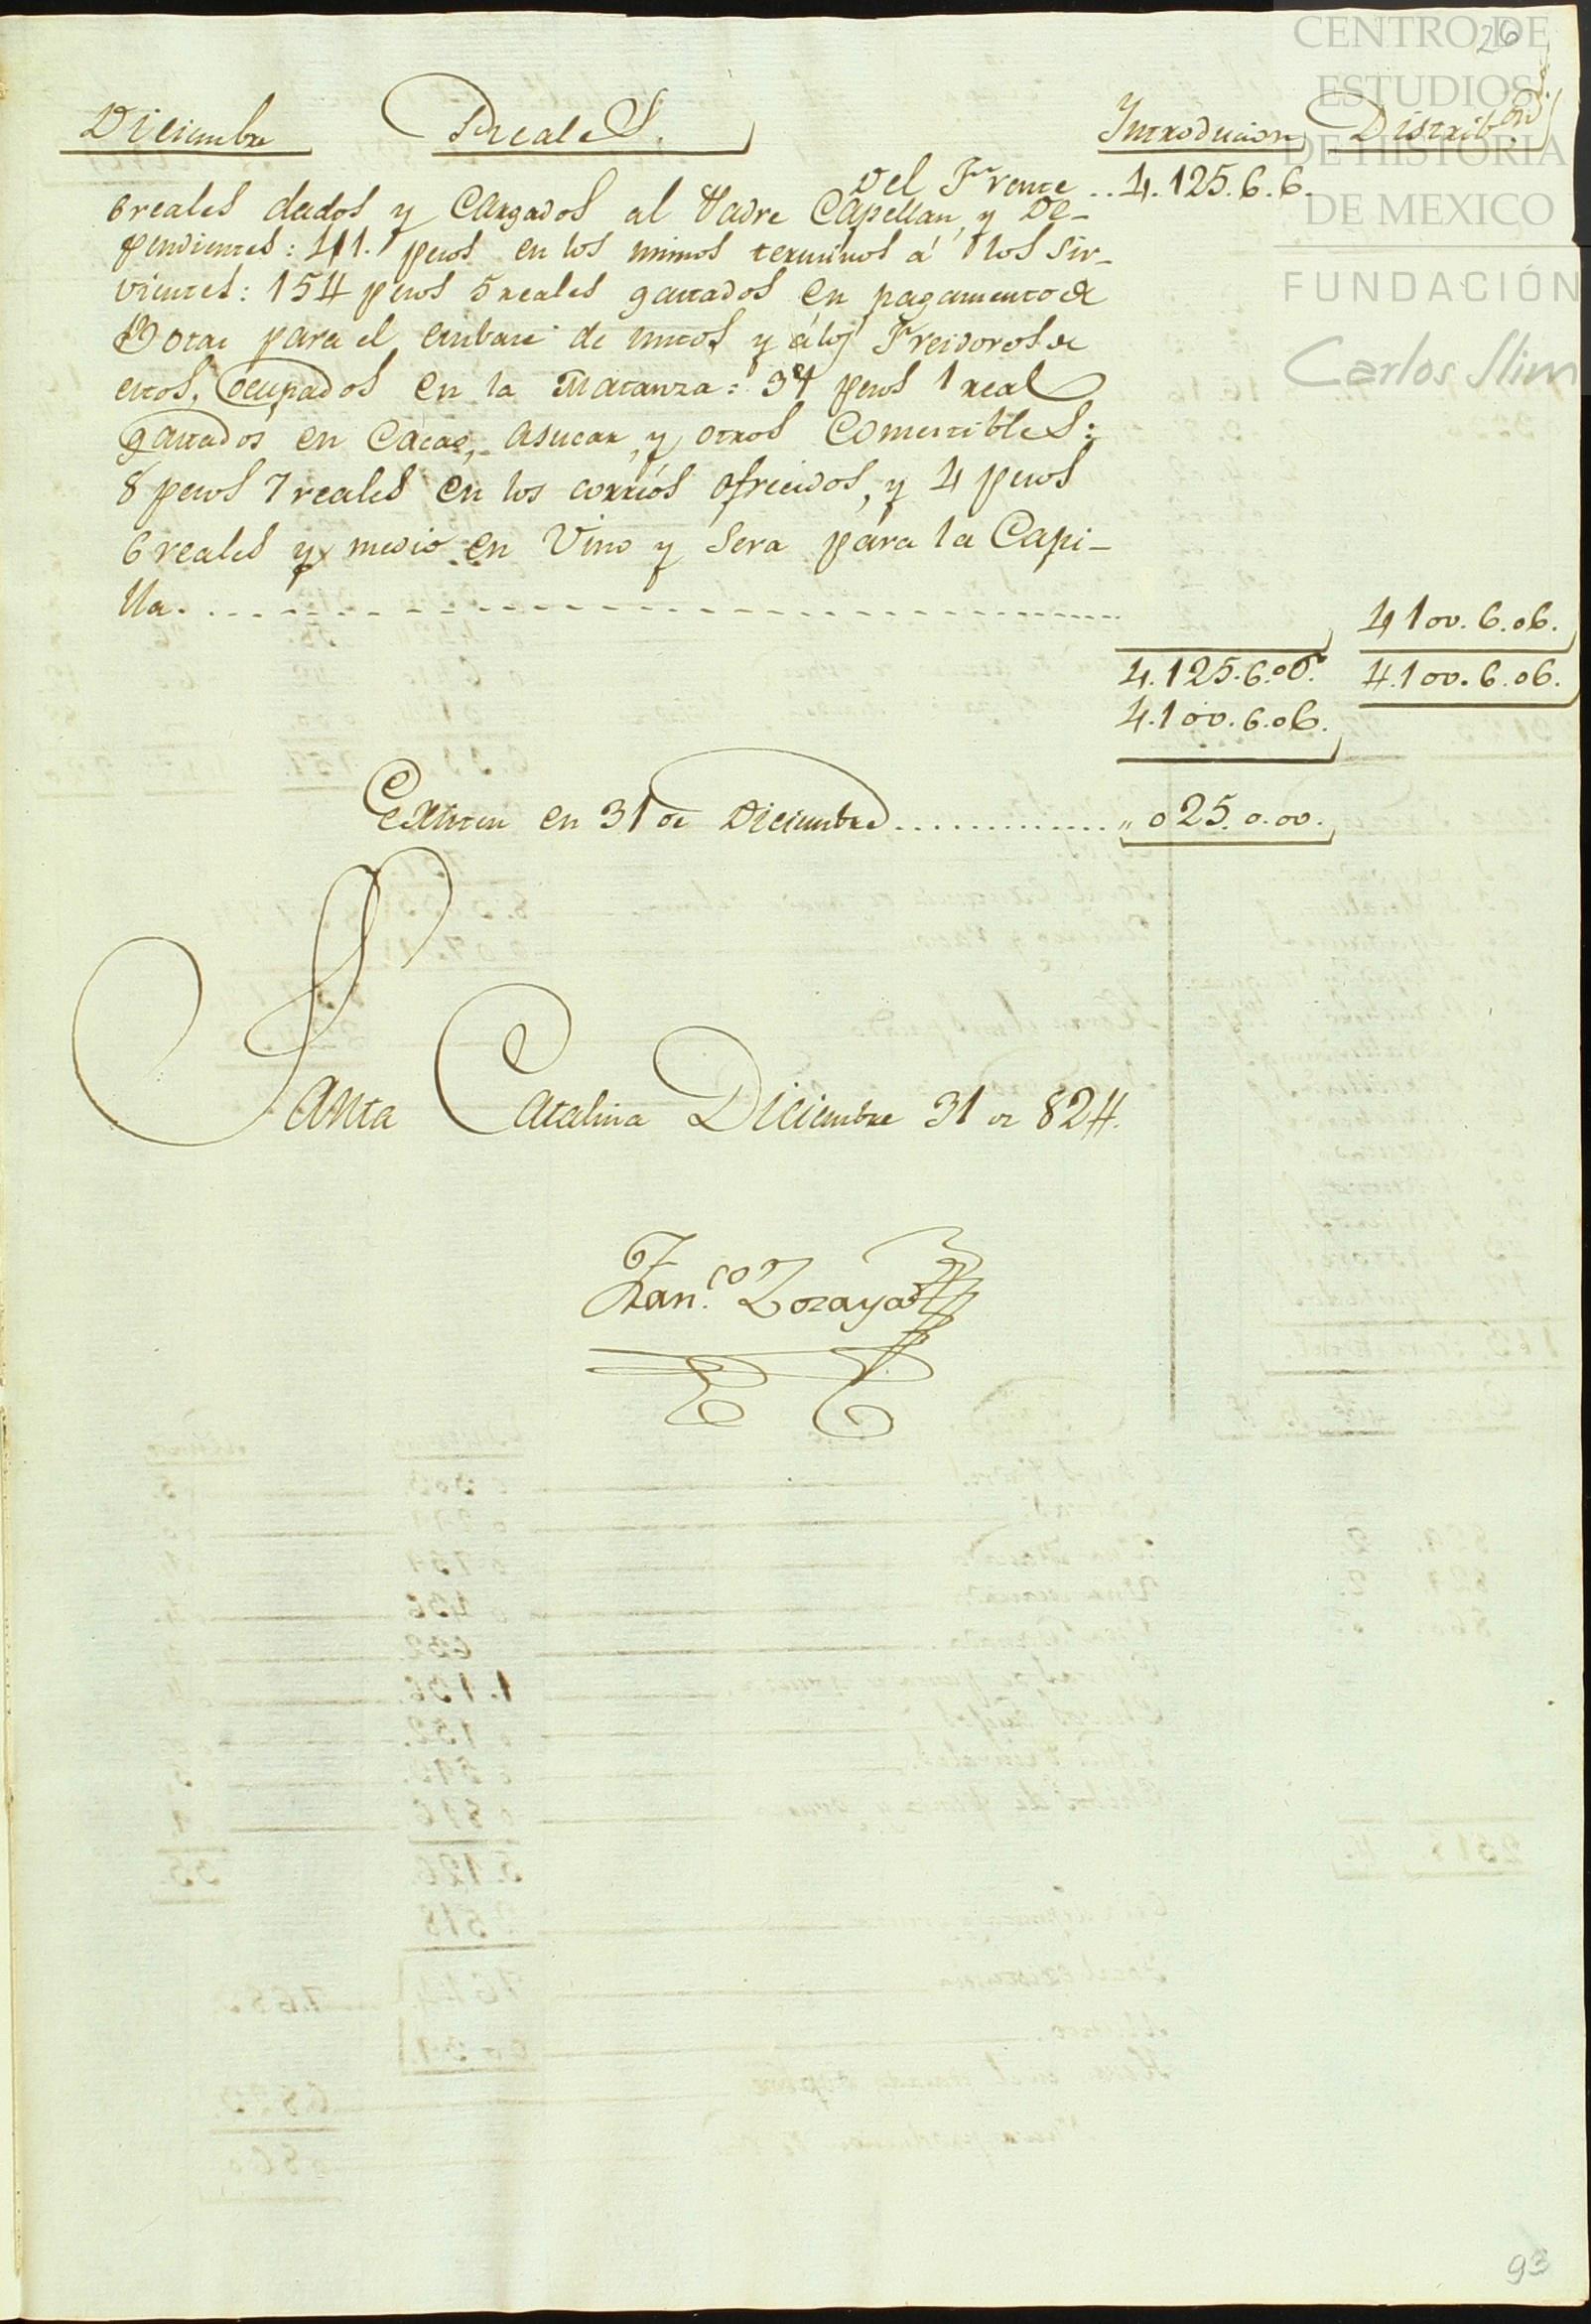 CENTRO DE
ESTUDIOS
DE HISTORIA
DE MEXICO
FUNDACIÓN
Carlos Slim
26
Diciembre Reales. Introducion Distribon.
Del Frente .. 4.125.6.6.
6 reales dados y Cargados al Padre Capellan, y De-
pendientes: 411. pesos en los mimos terminos á los Sir-
vientes: 154 pesos 5 reales gastados en pagamento de
Botas para el embase de untos y á los Freidores de
estos, ocupados en la Matanza: 34 pesos 1 real
gastados en Cacao, Asucar, y otros Comestibles:
8 pesos 7 reales en los corréos ofrecidos, y 4 pesos
6 reales y medio en Vino y Sera para la Capi-
lla. 4100.6.06.
4.125.6.06. 4.100.6.06.
4.100.6.06.
Existen en 31 de Diciembre ,, 025.0.00.
Santa Catalina Diciembre 31 de 824.
Franco. Zozaya
93